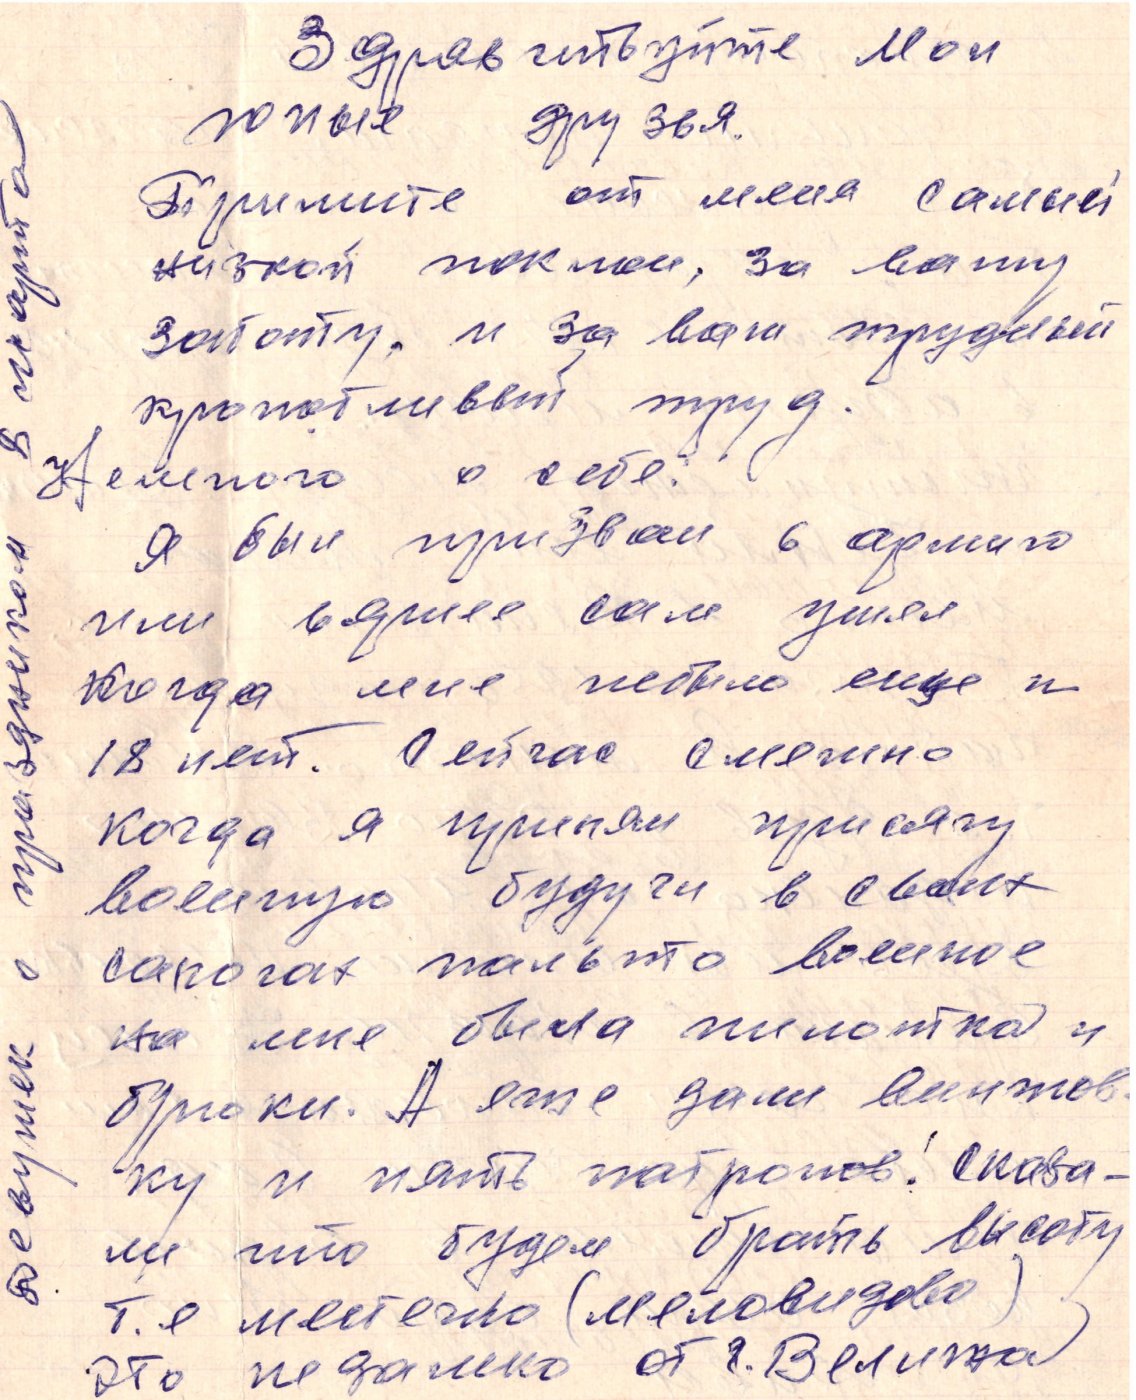 Здравствуйте Мои
юные друзья.
Примите от меня самый
низкой поклон, за вашу
заботу, и за ваш трудный
кропотливый труд.
Немного о себе:
Я был призван в армию
или вернее сам ушел
Когда мне небыло еще и
18 лет. Сейчас смешно
когда я принял присягу
военную будучи в своих
сапогах пальто военное
на мне была пилотка и
брюки. А еже дали винтов-
ку и пять патронов! Сказа-
ли что будем брать высоту
т.е местечко (меловидово)
это недалеко от г. Велижа
девушек с праздником 8 марта